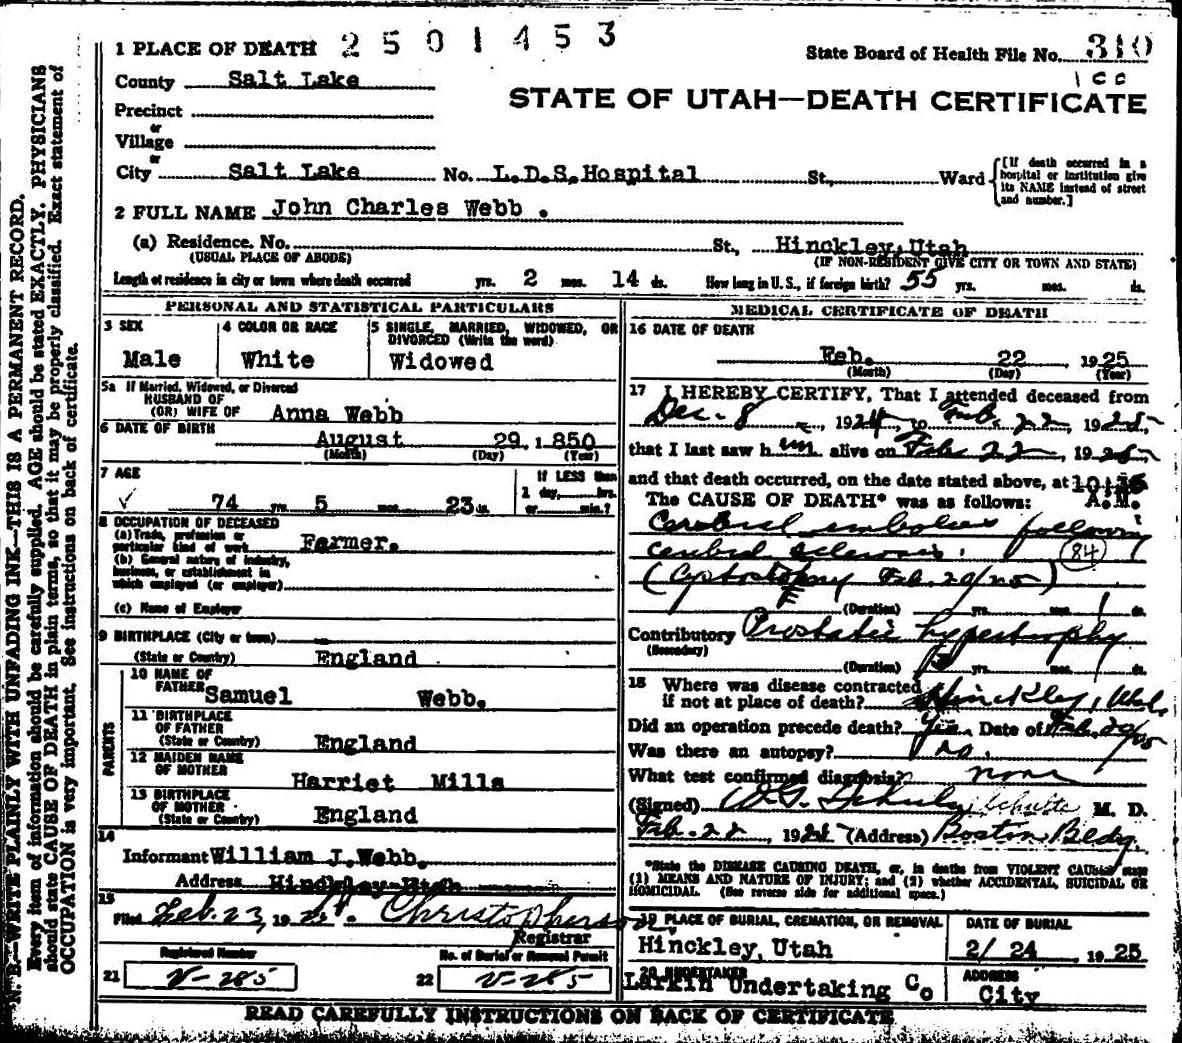 N. B.—WRITE PLAINLY WITH UNFADING INK—THIS IS A PERMANENT RECORD.
Every item of information should be carefully supplied. AGE should be stated EXACTLY. PHYSICIANS
should state CAUSE OF DEATH in plain terms, so that it may be properly classified. Exact statement of
OCCUPATION is very important. See instructions on back of certificate.
1 PLACE OF DEATH 2501453
State Board of Health File No. 310
County Salt Lake
100
STATE OF UTAH—DEATH CERTIFICATE
Precinct
or
Village
or
City Salt Lake No. L.D.S. Hospital St., Ward
[If death occurred in a
hospital or institution give
its NAME instead of street
and number.]
2 FULL NAME John Charles Webb .
(a) Residence. No. St., Hinckley, Utah
(USUAL PLACE OF ABODE) (IF NON-RESIDENT GIVE CITY OR TOWN AND STATE)
Length of residence in city or town where death occurred yrs. 2 mos. 14 ds. How long in U. S., if foreign birth? 55 yrs. mos. ds.
PERSONAL AND STATISTICAL PARTICULARS
3 SEX
Male
4 COLOR OR RACE
White
5 SINGLE, MARRIED, WIDOWED, OR
DIVORCED (Write the word)
Widowed
5a If Married, Widowed, or Divorced
HUSBAND OF
(OR) WIFE OF Anna Webb
6 DATE OF BIRTH
August 29, 1850
(Month) (Day) (Year)
7 AGE
74 yrs. 5 mos. 23 ds.
If LESS than
1 day, hrs.
or min.?
8 OCCUPATION OF DECEASED
(a) Trade, profession or
particular kind of work Farmer.
(b) General nature of industry,
business, or establishment in
which employed (or employer)
(c) Name of Employer
9 BIRTHPLACE (City or town)
(State or Country) England
PARENTS
10 NAME OF
FATHER Samuel Webb.
11 BIRTHPLACE
OF FATHER
(State or Country) England
12 MAIDEN NAME
OF MOTHER
Harriet Mills
13 BIRTHPLACE
OF MOTHER
(State or Country) England
14
Informant William J. Webb.
Address Hinckley Utah
15
Filed Feb. 23, 192 Christopherson
Registrar
Registered Number
21 V-285
No. of Burial or Removal Permit
22 V-285
MEDICAL CERTIFICATE OF DEATH
16 DATE OF DEATH
Feb. 22 1925
(Month) (Day) (Year)
17 I HEREBY CERTIFY, That I attended deceased from
Dec. 8, 1924, to Feb. 22, 1925,
that I last saw him alive on Feb 22, 1925,
and that death occurred, on the date stated above, at
A.M.
The CAUSE OF DEATH* was as follows:
Cerebral embolus following
cerebral sclerosis. 84
(Cystostomy Feb. 20/25)
(Duration) yrs. mos. 1 ds.
Contributory Prostatic hypertrophy
(Secondary)
(Duration) yrs. mos. ds.
18 Where was disease contracted
if not at place of death? Hinckley, Utah
Did an operation precede death? Yes. Date of Feb. 20/25
Was there an autopsy? No.
What test confirmed diagnosis? none
(Signed) Schulte M. D.
Feb. 22, 1925 (Address) Boston Bldg.
*State the DISEASE CAUSING DEATH, or, in deaths from VIOLENT CAUSES state
(1) MEANS AND NATURE OF INJURY; and (2) whether ACCIDENTAL, SUICIDAL OR
HOMICIDAL. (See reverse side for additional space.)
19 PLACE OF BURIAL, CREMATION, OR REMOVAL
Hinckley, Utah
DATE OF BURIAL
2/ 24, 1925
20 UNDERTAKER
Larkin Undertaking Co
ADDRESS
City
READ CAREFULLY INSTRUCTIONS ON BACK OF CERTIFICATE